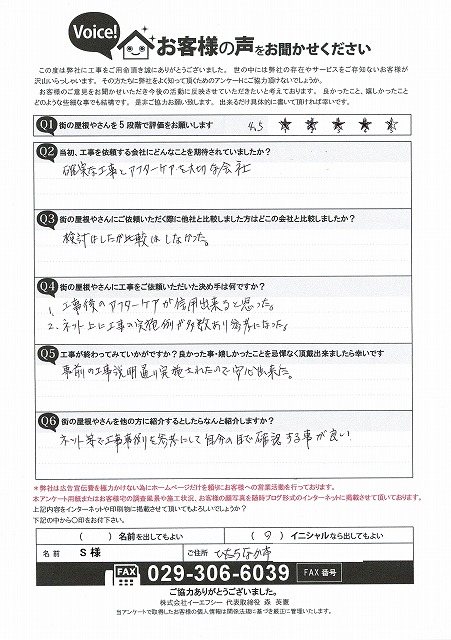 Voice!
お客様の声をお聞かせください
この度は弊社に工事をご用命頂き誠にありがとうございました。 世の中には弊社の存在やサービスをご存知ないお客様が
沢山いらっしゃいます。 その方たちに弊社をよく知って頂くためのアンケートにご協力頂けないでしょうか。
お客様のご意見をお聞かせいただき今後の活動に反映させていただきたいと考えております。 良かったこと、嬉しかったこと
どのような些細な事でも結構です。 是非ご協力お願い致します。 出来るだけ具体的に書いて頂ければ幸いです。
Q1 街の屋根やさんを5段階で評価をお願いします 4.5 ★ ★ ★ ★ ★
Q2 当初、工事を依頼する会社にどんなことを期待されていましたか?
確実な工事とアフターケアを大切な会社
Q3 街の屋根やさんにご依頼いただく際に他社と比較しました方はどこの会社と比較しましたか?
検討はしたが比較はしなかった。
Q4 街の屋根やさんに工事をご依頼いただいた決め手は何ですか?
1. 工事後のアフターケアが信用出来ると思った。
2. ネット上に工事の実施例が多数あり参考になった。
Q5 工事が終わってみていかがですか?良かった事・嬉しかったことを忌憚なく頂戴出来ましたら幸いです
事前の工事説明通り実施されたので安心出来た。
Q6 街の屋根やさんを他の方に紹介するとしたらなんと紹介しますか?
ネット等で工事事例を参考にして自分の目で確認する事が良い
*弊社は広告宣伝費を極力かけない為にホームページだけを頼りにお客様への営業活動を行っております。
本アンケート用紙またはお客様宅の調査風景や施工状況、お客様の顔写真を随時ブログ形式のインターネットに掲載させて頂いております。
上記内容をインターネットや印刷物に掲載させて頂いてもよろしいでしょうか?
下記の中から〇印をお付下さい。
( )名前を出してもよい ( 9 )イニシャルなら出してもよい
名前 S様 ご住所 ひたちなか市
FAX 029-306-6039 FAX番号
ご協力ありがとうございました。
株式会社イーエフシー 代表取締役 森 英憲
当アンケートで取得したお客様の個人情報は関係法規に基づき厳正に管理いたします。